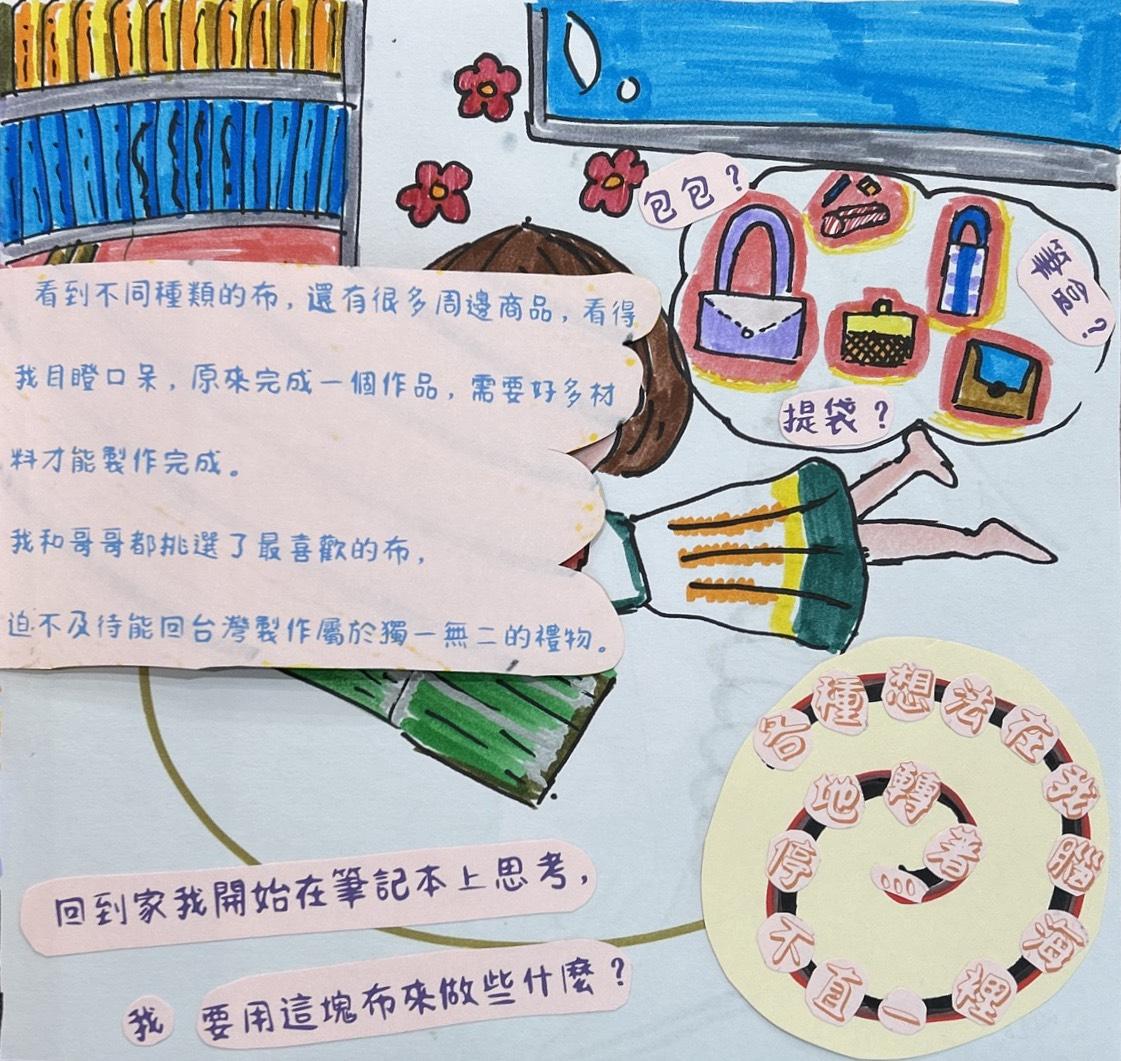 包包？
筆包？
提袋？
看到不同種類的布，還有很多周邊商品，看得
我目瞪口呆，原來完成一個作品，需要好多材
料才能製作完成。
我和哥哥都挑選了最喜歡的布，
迫不及待能回台灣製作屬於獨一無二的禮物。
回到家我開始在筆記本上思考，
我要用這塊布來做些什麼？
各種想法在我腦海裡一直不停地轉著...